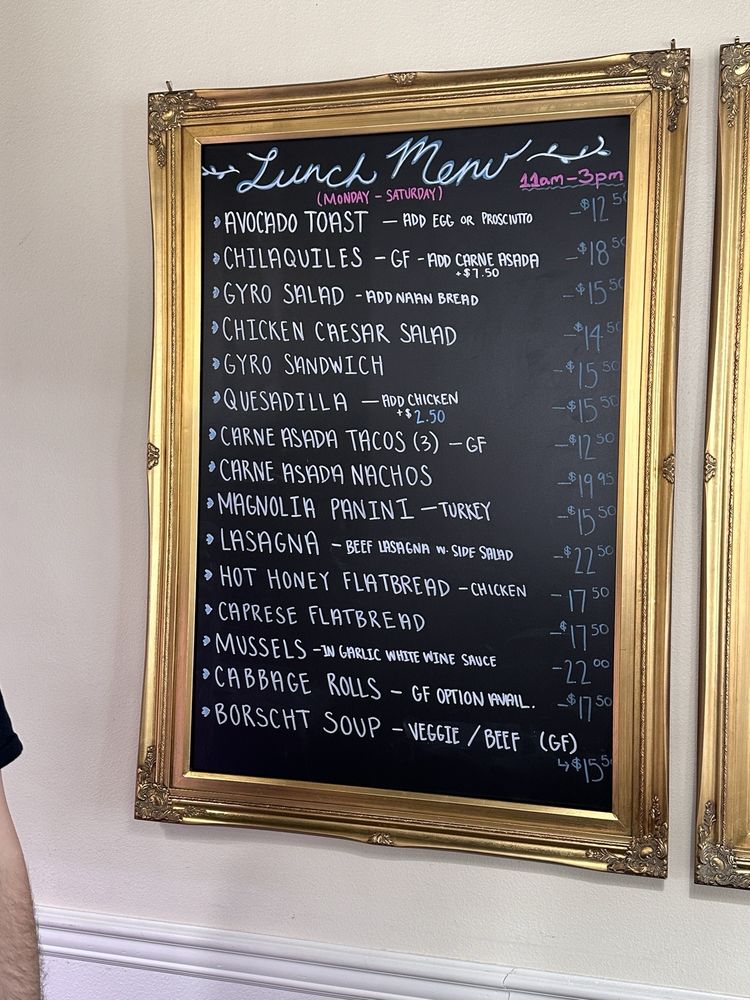 Lunch Menu
(MONDAY - SATURDAY) 11am-3pm
AVOCADO TOAST - ADD EGG OR PROSCIUTTO -$12.50
CHILAQUILES - GF - ADD CARNE ASADA -$18.50
+$7.50
GYRO SALAD - ADD NAAN BREAD -$15.50
CHICKEN CAESAR SALAD -$14.50
GYRO SANDWICH -$15.50
QUESADILLA - ADD CHICKEN -$15.50
+$2.50
CARNE ASADA TACOS (3) - GF -$12.50
CARNE ASADA NACHOS -$19.95
MAGNOLIA PANINI - TURKEY -$15.50
LASAGNA - BEEF LASAGNA W. SIDE SALAD -$22.50
HOT HONEY FLATBREAD - CHICKEN - 17.50
CAPRESE FLATBREAD -$17.50
MUSSELS - IN GARLIC WHITE WINE SAUCE -22.00
CABBAGE ROLLS - GF OPTION AVAIL. -$17.50
BORSCHT SOUP - VEGGIE / BEEF (GF)
↳$15.50